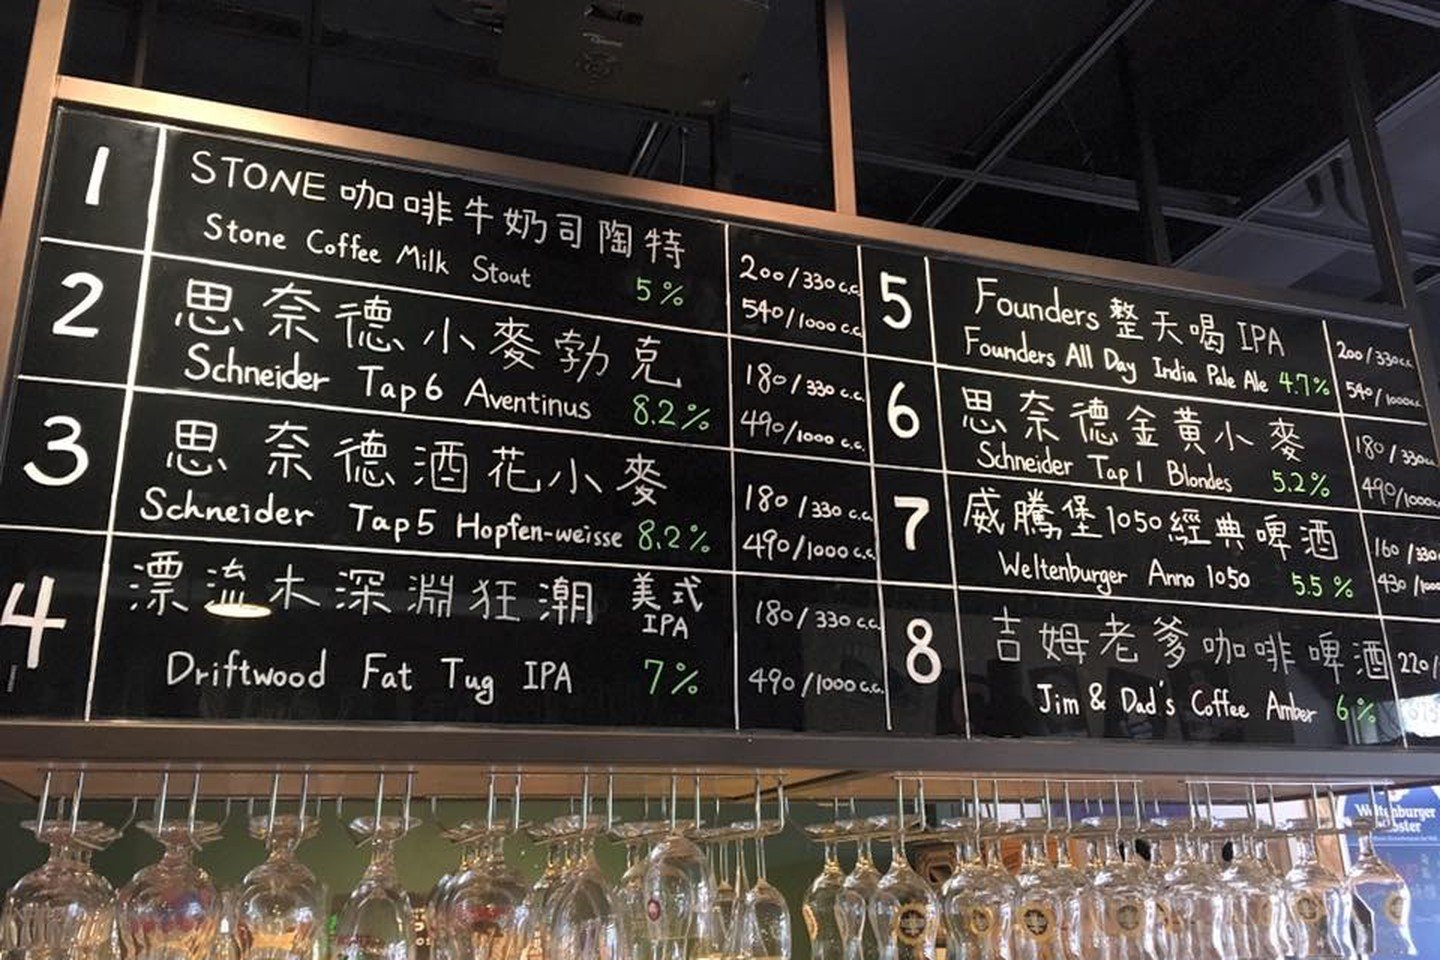 1
STONE 咖啡牛奶司陶特
Stone Coffee Milk Stout 5%
200/330 c.c.
540/1000 c.c.
2
思奈德小麥勃克
Schneider Tap 6 Aventinus 8.2%
180/330 c.c.
490/1000 c.c.
3
思奈德酒花小麥
Schneider Tap 5 Hopfen-weisse 8.2%
180/330 c.c.
490/1000 c.c.
4
漂流木深淵狂潮 美式
IPA
Driftwood Fat Tug IPA 7%
180/330 c.c.
490/1000 c.c.
5
Founders 整天喝 IPA
Founders All Day India Pale Ale 4.7%
200/330 c.c.
540/1000 c.c.
6
思奈德金黃小麥
Schneider Tap 1 Blondes 5.2%
180/330 c.c.
490/1000 c.c.
7
威騰堡1050經典啤酒
Weltenburger Anno 1050 5.5%
160/330
430/1000
8
吉姆老爹咖啡啤酒
Jim & Dad's Coffee Amber 6%
220/
Weltenburger